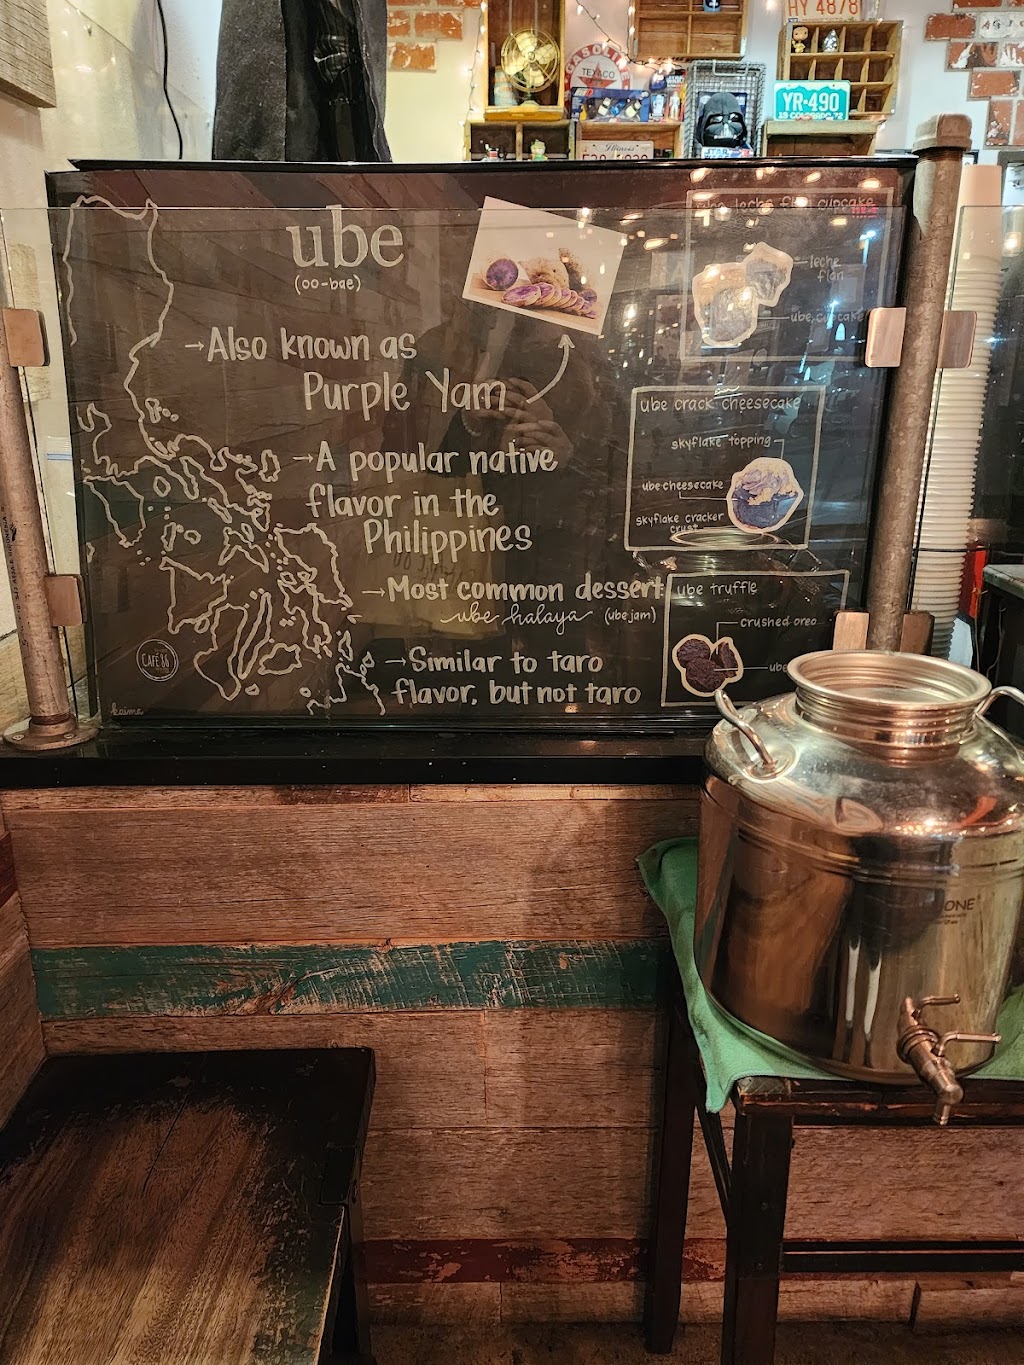 HY 4878
GASOLINE
TEXACO
YR-490
19 COLORADO 72
Illinois
STAR WARS
ube
(oo-bae)
→Also known as
Purple Yam
→A popular native
flavor in the
Philippines
→Most common dessert:
ube halaya (ube jam)
→Similar to taro
flavor, but not taro
CAFÉ 86
kaime
leche flan cupcake
leche
flan
ube cupcake
ube crack cheesecake
skyflake topping
ube cheesecake
skyflake cracker
crust
ube truffle
crushed oreo
ube
ONE